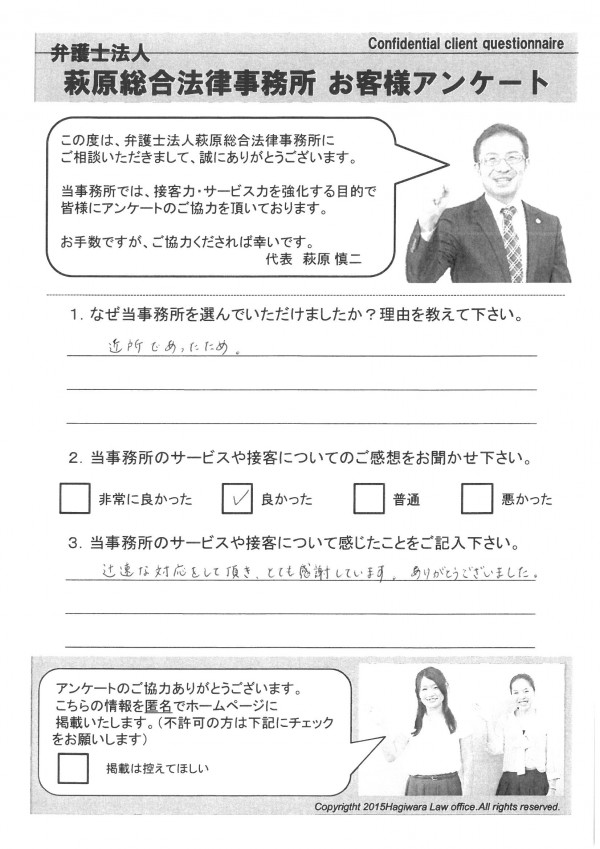 Confidential client questionnaire
弁護士法人
萩原総合法律事務所 お客様アンケート
この度は、弁護士法人萩原総合法律事務所に
ご相談いただきまして、誠にありがとうございます。
当事務所では、接客力・サービス力を強化する目的で
皆様にアンケートのご協力を頂いております。
お手数ですが、ご協力くだされば幸いです。
代表 萩原 慎二
1．なぜ当事務所を選んでいただけましたか？理由を教えて下さい。
近所であったため。
2．当事務所のサービスや接客についてのご感想をお聞かせ下さい。
非常に良かった ✓ 良かった 普通 悪かった
3．当事務所のサービスや接客について感じたことをご記入下さい。
迅速な対応をして頂き、とても感謝しています。ありがとうございました。
アンケートのご協力ありがとうございます。
こちらの情報を匿名でホームページに
掲載いたします。（不許可の方は下記にチェック
をお願いします）
掲載は控えてほしい
Copyrigtht 2015Hagiwara Law office.All rights reserved.